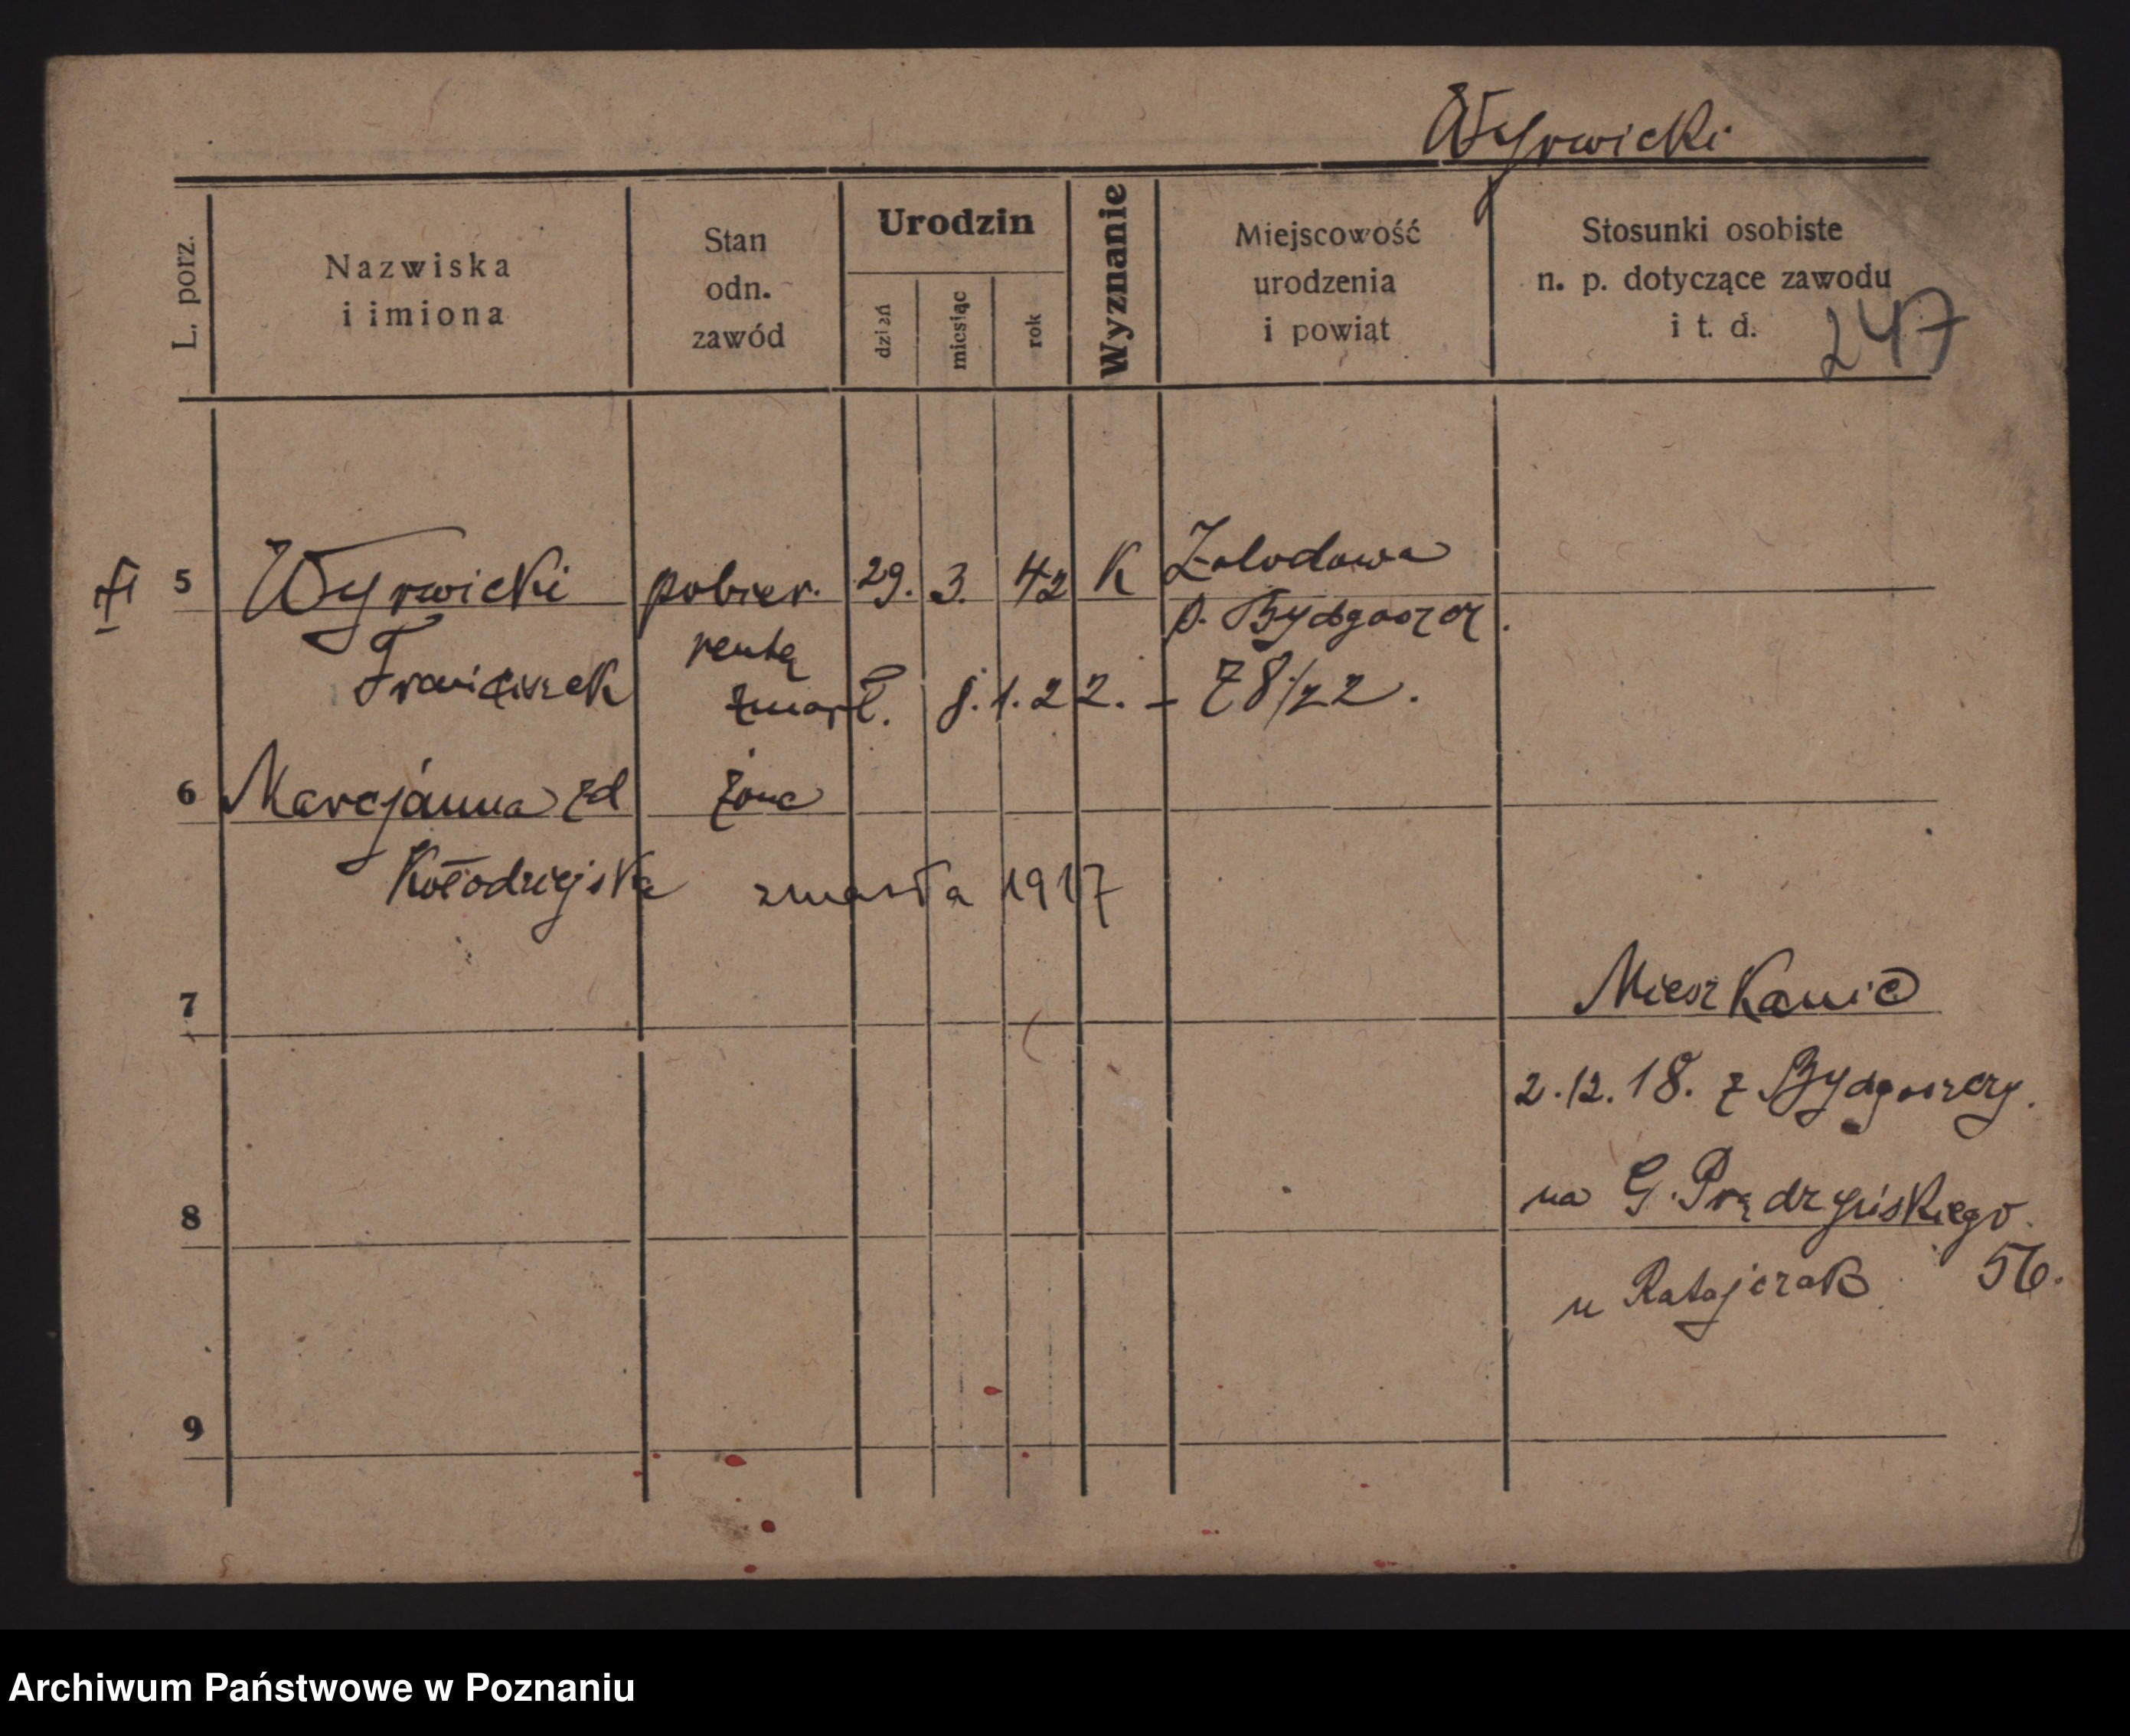 Wyrwicki
L. porz.
Nazwiska
i imiona
Stan
odn.
zawód
Urodzin
dzień
miesiąc
rok
Wyznanie
Miejscowość
urodzenia
i powiat
Stosunki osobiste
n. p. dotyczące zawodu
i t. d.
247
5 Wyrwicki pobier. 29. 3. 42 K
p. Bydgoszcz.
Franciszek rentę
zmarł. 1.22. - 78/22.
6 Marcjanna zd żona
Kołodziejska zmarła 1917
7 Mieszkanie
2.12.18. z Bydgoszczy.
8 na G. Prądzyńskiego
56.
u Ratajczak
9
Archiwum Państwowe w Poznaniu